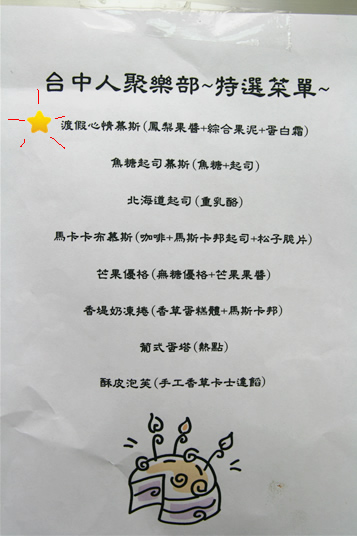 台中人聚樂部~特選菜單~
渡假心情慕斯(鳳梨果醬+綜合果泥+蛋白霜)
焦糖起司慕斯(焦糖+起司)
北海道起司(重乳酪)
馬卡卡布慕斯(咖啡+馬斯卡邦起司+松子脆片)
芒果優格(無糖優格+芒果果醬)
香堤奶凍捲(香草蛋糕體+馬斯卡邦)
葡式蛋塔(熱點)
酥皮泡芙(手工香草卡士達餡)